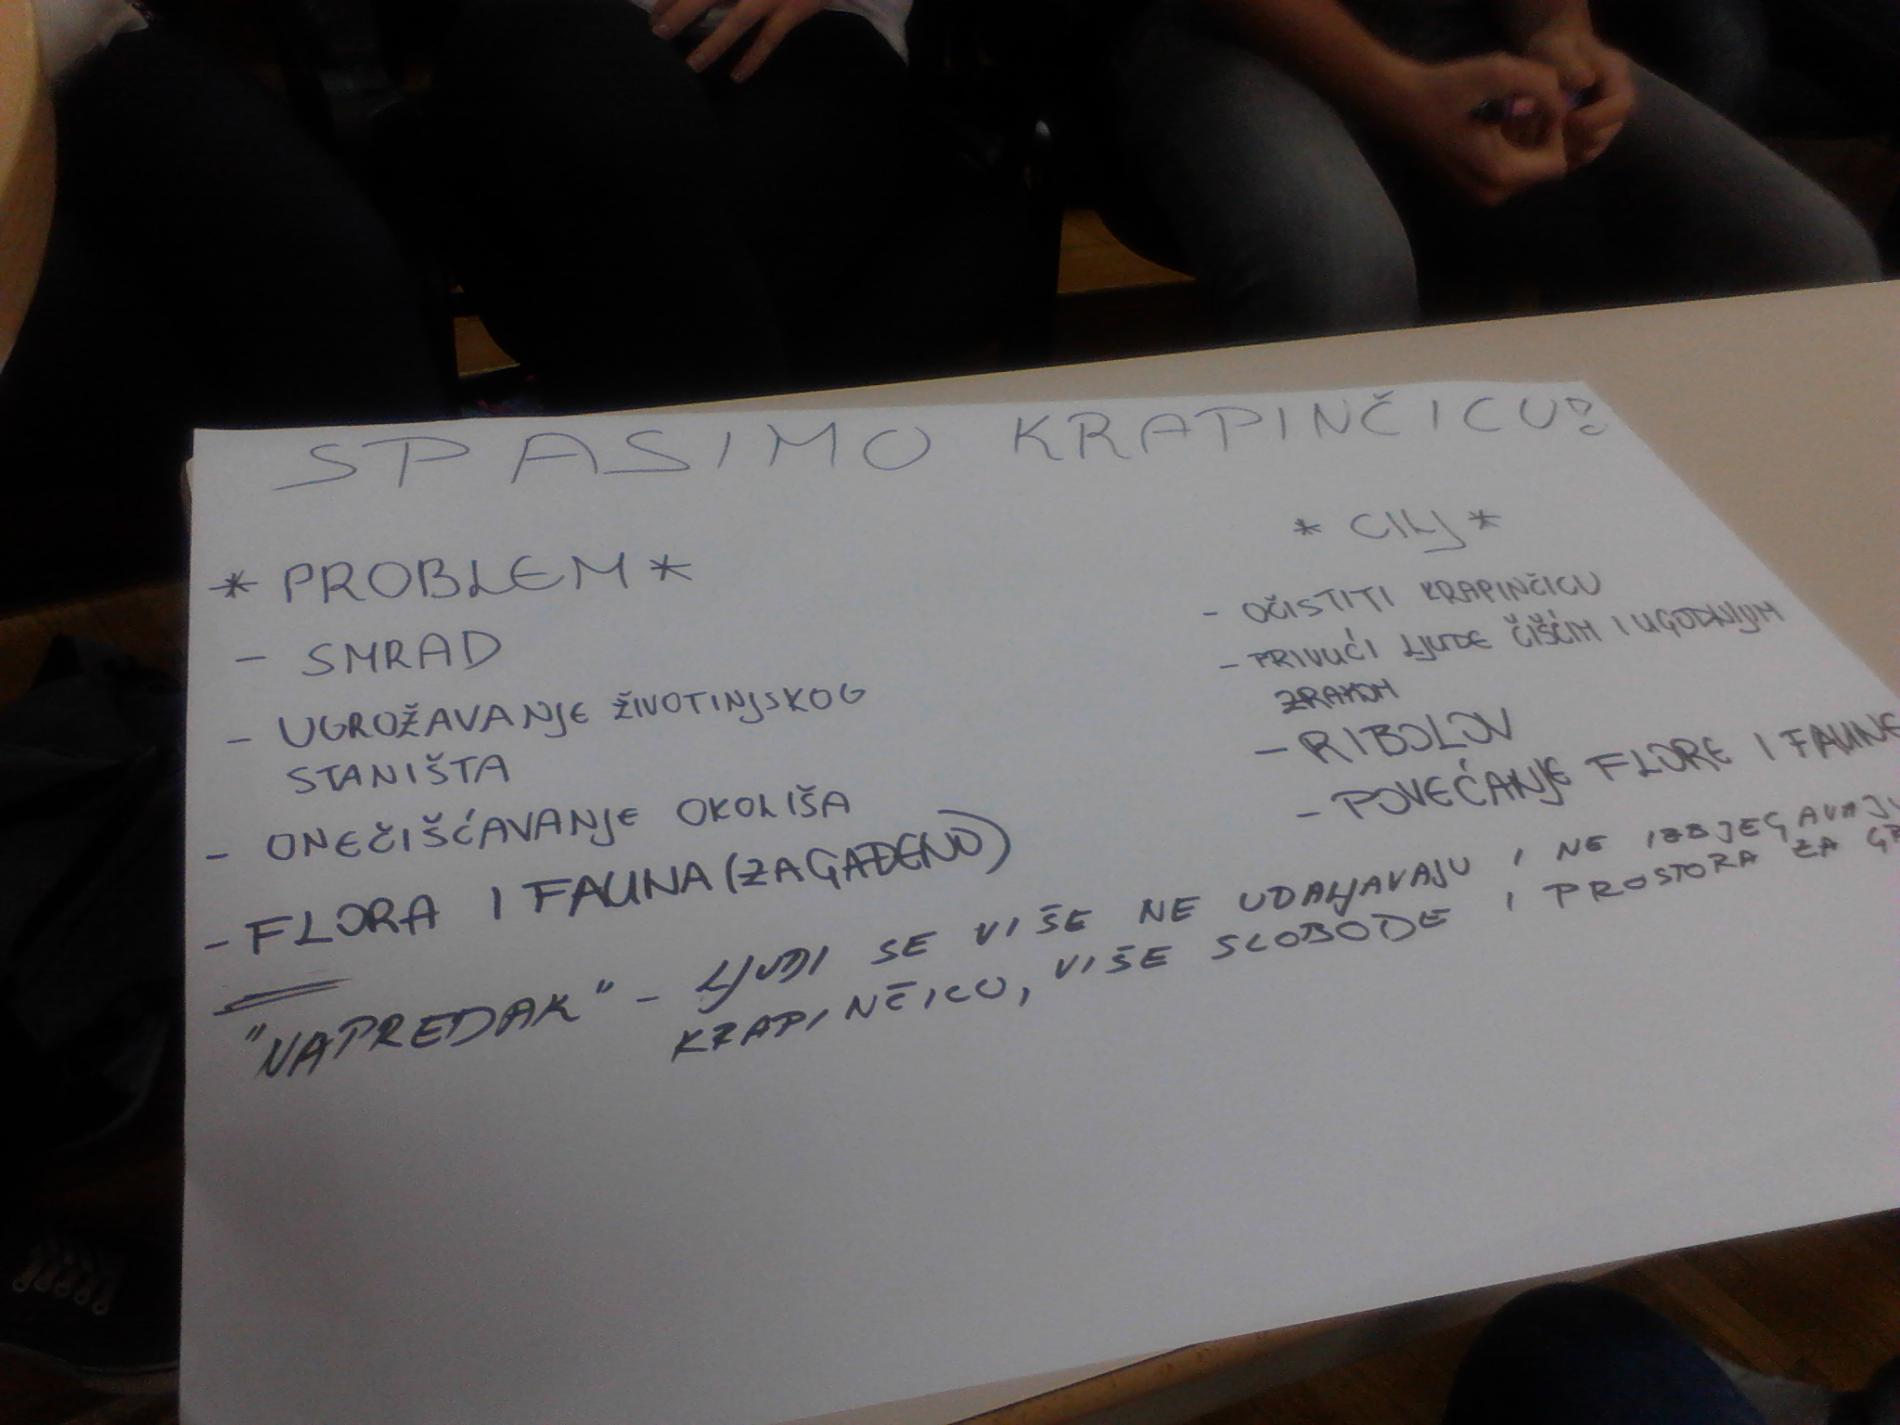 SPASIMO KRAPINČICU!
* PROBLEM *
- SMRAD
- UGROŽAVANJE ŽIVOTINJSKOG
STANIŠTA
- ONEČIŠĆAVANJE OKOLIŠA
- FLORA I FAUNA (ZAGAĐENO)
* CILJ *
- OČISTITI KRAPINČICU
- PRIVUĆI LJUDE ČIŠĆIM I UGODNIJIM
ZRAKOM
- RIBOLOV
- POVEĆANJE FLORE I FAUNE
"NAPREDAK" - LJUDI SE VIŠE NE UDALJAVAJU I NE IZBJEGAVAJU
KRAPINČICU, VIŠE SLOBODE I PROSTORA ZA